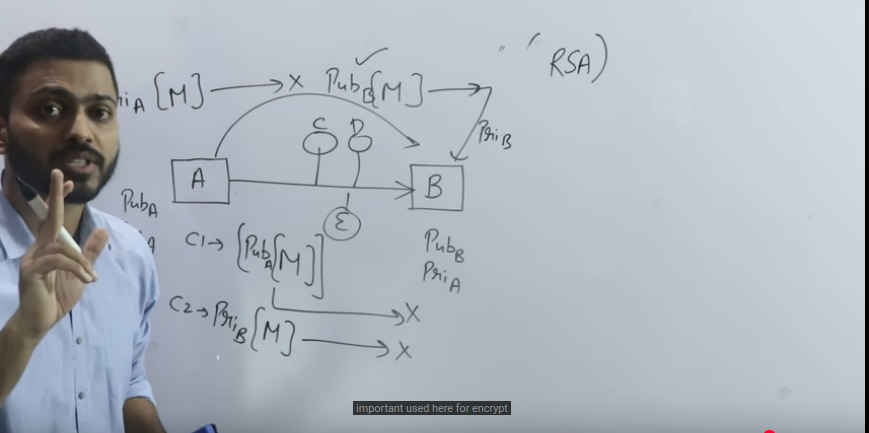 RSA)
riA [M] → X PubB[M] →
PriB
C D
A B
E
PubA
A
PubB
PriA
C1→ [PubA[M]]
→X
C2→ PriB[M] → X
important used here for encrypt